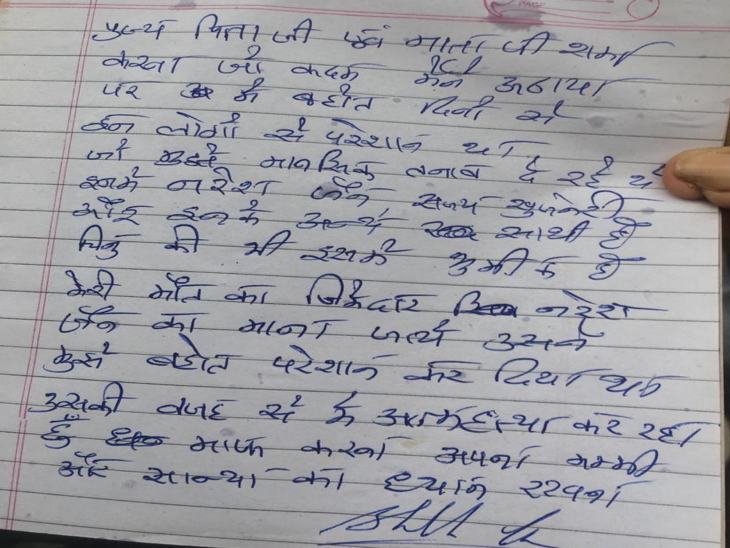 पुज्य पिता जी एवं माता जी क्षमा
करना जो कदम मैंने उठाया
पर में बहोत दिनो से
इन लोगों से परेशान था
जो मुझे मानसिक तनाव दे रहे थे
इसमें नरेश जैन राजा
और इनके अन्य साथी हैं
पिंकु की भी इसमें भुमीका हैं
मेरी मौत का जिमेदार नरेश
जैन का माना जाये उसने
मुझे बहोत परेशान कर दिया था
उसकी वजह से में आत्महत्या कर रहा
हुँ माफ करना अपना मम्मी
और सान्या का ध्यान रखना